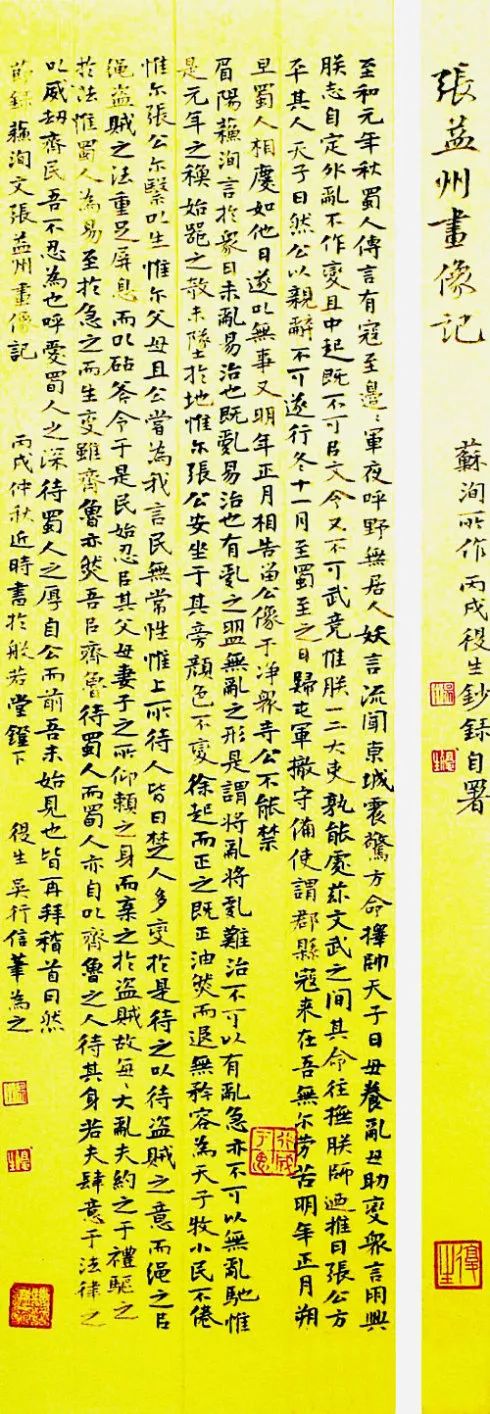 張益州畫像記
蘇洵所作 丙戌役生鈔録自署
至和元年秋蜀人傳言有寇至邊〻軍夜呼野無居人妖言流聞東城震驚方命擇帥天子曰毋養亂毋助變衆言朋興
朕志自定外亂不作變且中起既不可㠯文令又不可武竞惟朕一二大吏孰能處茲文武之間其命往撫朕師迺推曰張公方
平其人天子曰然公以親辭不可遂行冬十一月至蜀至之日歸屯軍撤守備使謂郡縣寇来在吾無尔劳苦明年正月朔
旦蜀人相慶如他日遂㠯無事又明年正月相告畄公像于净衆寺公不能禁
眉陽蘇洵言扵衆曰未亂易治也既亂易治也有亂之萌無亂之形是謂將亂將亂難治不可以有亂急亦不可以無亂馳惟
是元年之穐始噐之欹未墜扵地惟尔張公安坐于其旁顔色不變徐起而正之既正油然而退無矜容為天子牧小民不倦
惟尔張公尔繄㠯生惟尔父母且公嘗為我言民無常性惟上所待人皆曰蜀人多變扵是待之以待盗賊之意而绳之㠯
绳盗賊之法重足屏息而㠯砧斧令于是民始忍㠯其父母妻子之所仰賴之身而棄之扵盗賊故每〻大亂夫約之于禮驅之
扵法惟蜀人為易至扵急之而生變雖齊魯亦然吾㠯齊魯待蜀人而蜀人亦自㠯齊魯之人待其身若夫肆意于法律之
㠯威劫齊民吾不忍為也呼愛蜀人之深待蜀人之厚自公而前吾未始見也皆再拜稽首曰然
節録蘇洵文張益州畫像記 丙戌仲秋近時書扵般若堂鐙下 役生吴行信筆為之